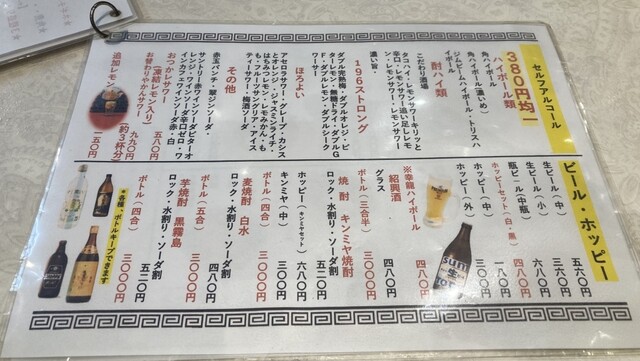 セルフアルコール
380円均一
ハイボール類
角ハイボール
角ハイボール(濃いめ)
ジムビームハイボール・トリスハイボール
酎ハイ類
こだわり酒場
タコハイ・レモンサワーキリッと辛口・レモンサワー追い足しレモン・レモンサワー・レモンサワー濃い旨
196ストロング
ダブル完熟梅・ダブルオレジ・ビターレモン・無糖ドライ・ダブルGF・ダブルレモン・ダブルピーク
ほろよい
アセロラサワー・グレープ・カシスとオレンジ・ジャスミンライチ・はちみつレモン・みかん・もも・フルーツサングリア・アイスティーサワー・梅酒ソーダ
その他
赤玉パンチ・翠ジンソーダ・サントリー赤ワインソーダビターオレンジ・ワインソーダ辛口ゼロ・ワインカフェ・ワインソーダ赤・白
おつかレサワー
(凍結レモン入り) 五八〇
お替わりやかんサワー
(約3杯分) 九九〇
追加レモン 一五〇円
ビール・ホッピー
生ビール(中) 五六〇
生ビール(小) 三八〇
瓶ビール(中瓶) 六八〇
ホッピーセット(白・黒) 四八〇
ホッピー(中) 一八〇
ホッピー(外) 三〇〇
※幸龍ハイボール 四八〇
紹興酒
グラス 四八〇
ボトル(三合半) 三〇〇〇円
焼酎 キンミヤ焼酎
ロック・水割り・ソーダ割 五二〇
ホッピー(キンミヤセット) 六八〇
キンミヤ(中) 三〇〇
ボトル(四合) 三〇〇〇円
麦焼酎 白水
ロック・水割り・ソーダ割 四八〇
ボトル(五合) 三〇〇〇円
芋焼酎 黒霧島
ロック・水割り・ソーダ割 五二〇
ボトル(四合) 三〇〇〇円
※各種、ボトルキープできます